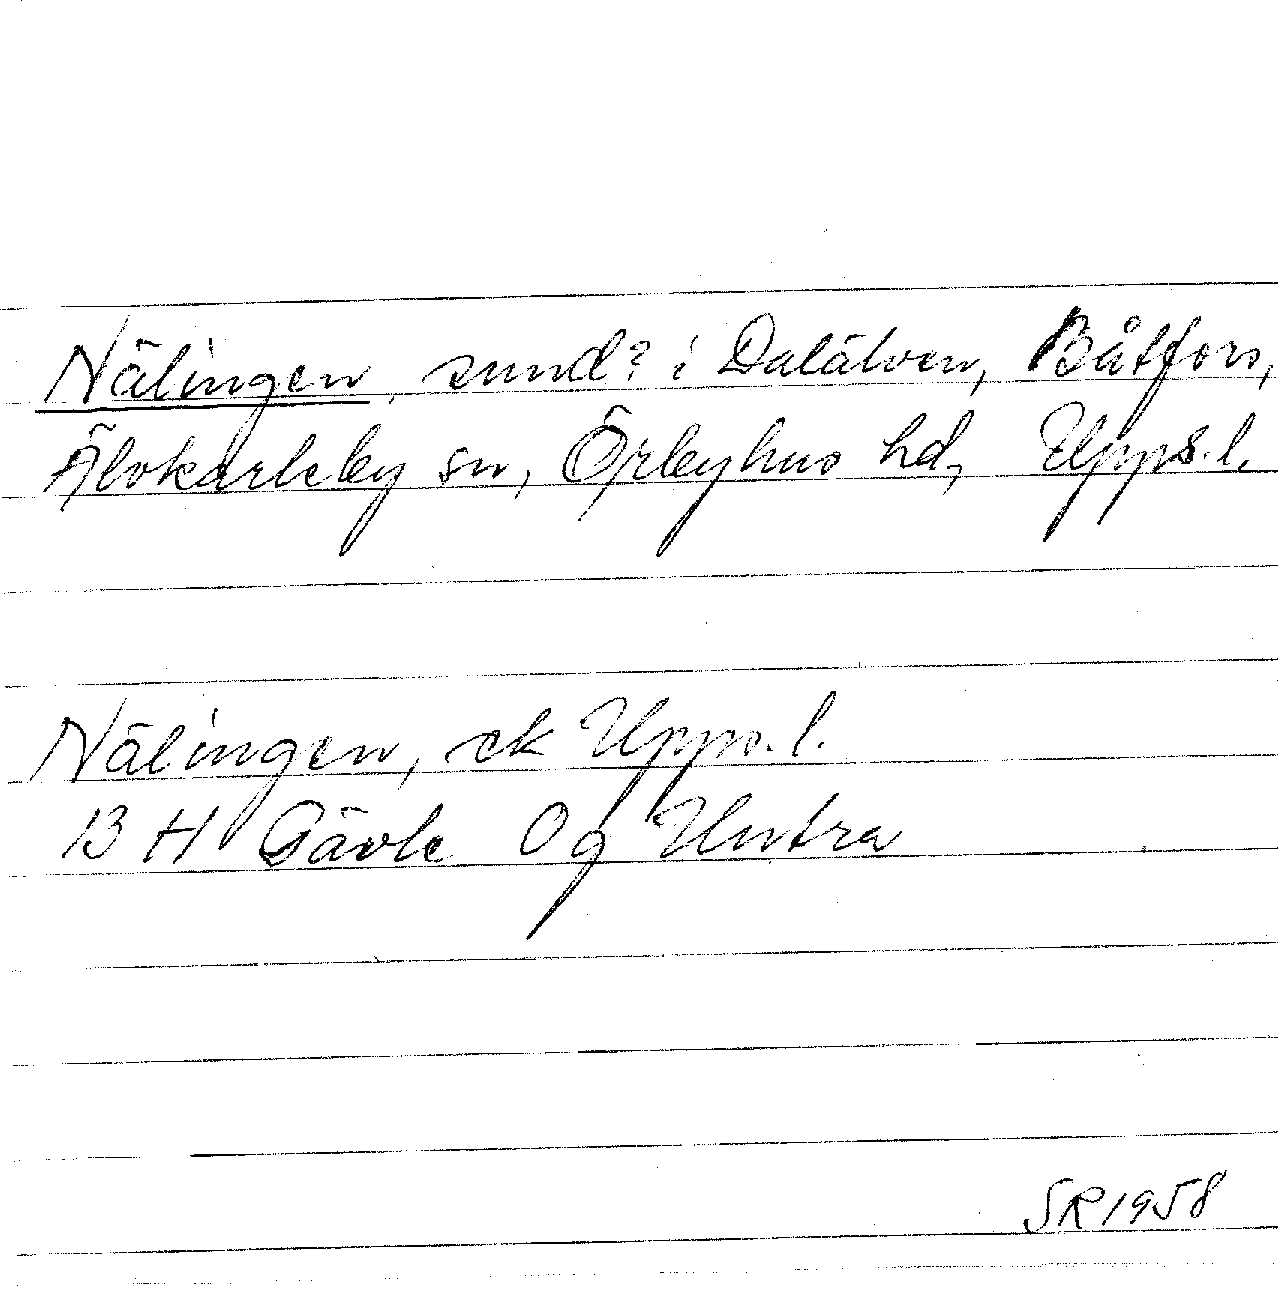 Nälingen, sund? i Dalälven, Båtfors,
Älvkarleby sn, Örbyhus hd, Upps. l.
Nälingen, ek Upps. l.
13 H Gävle Og Untra
SR 1958